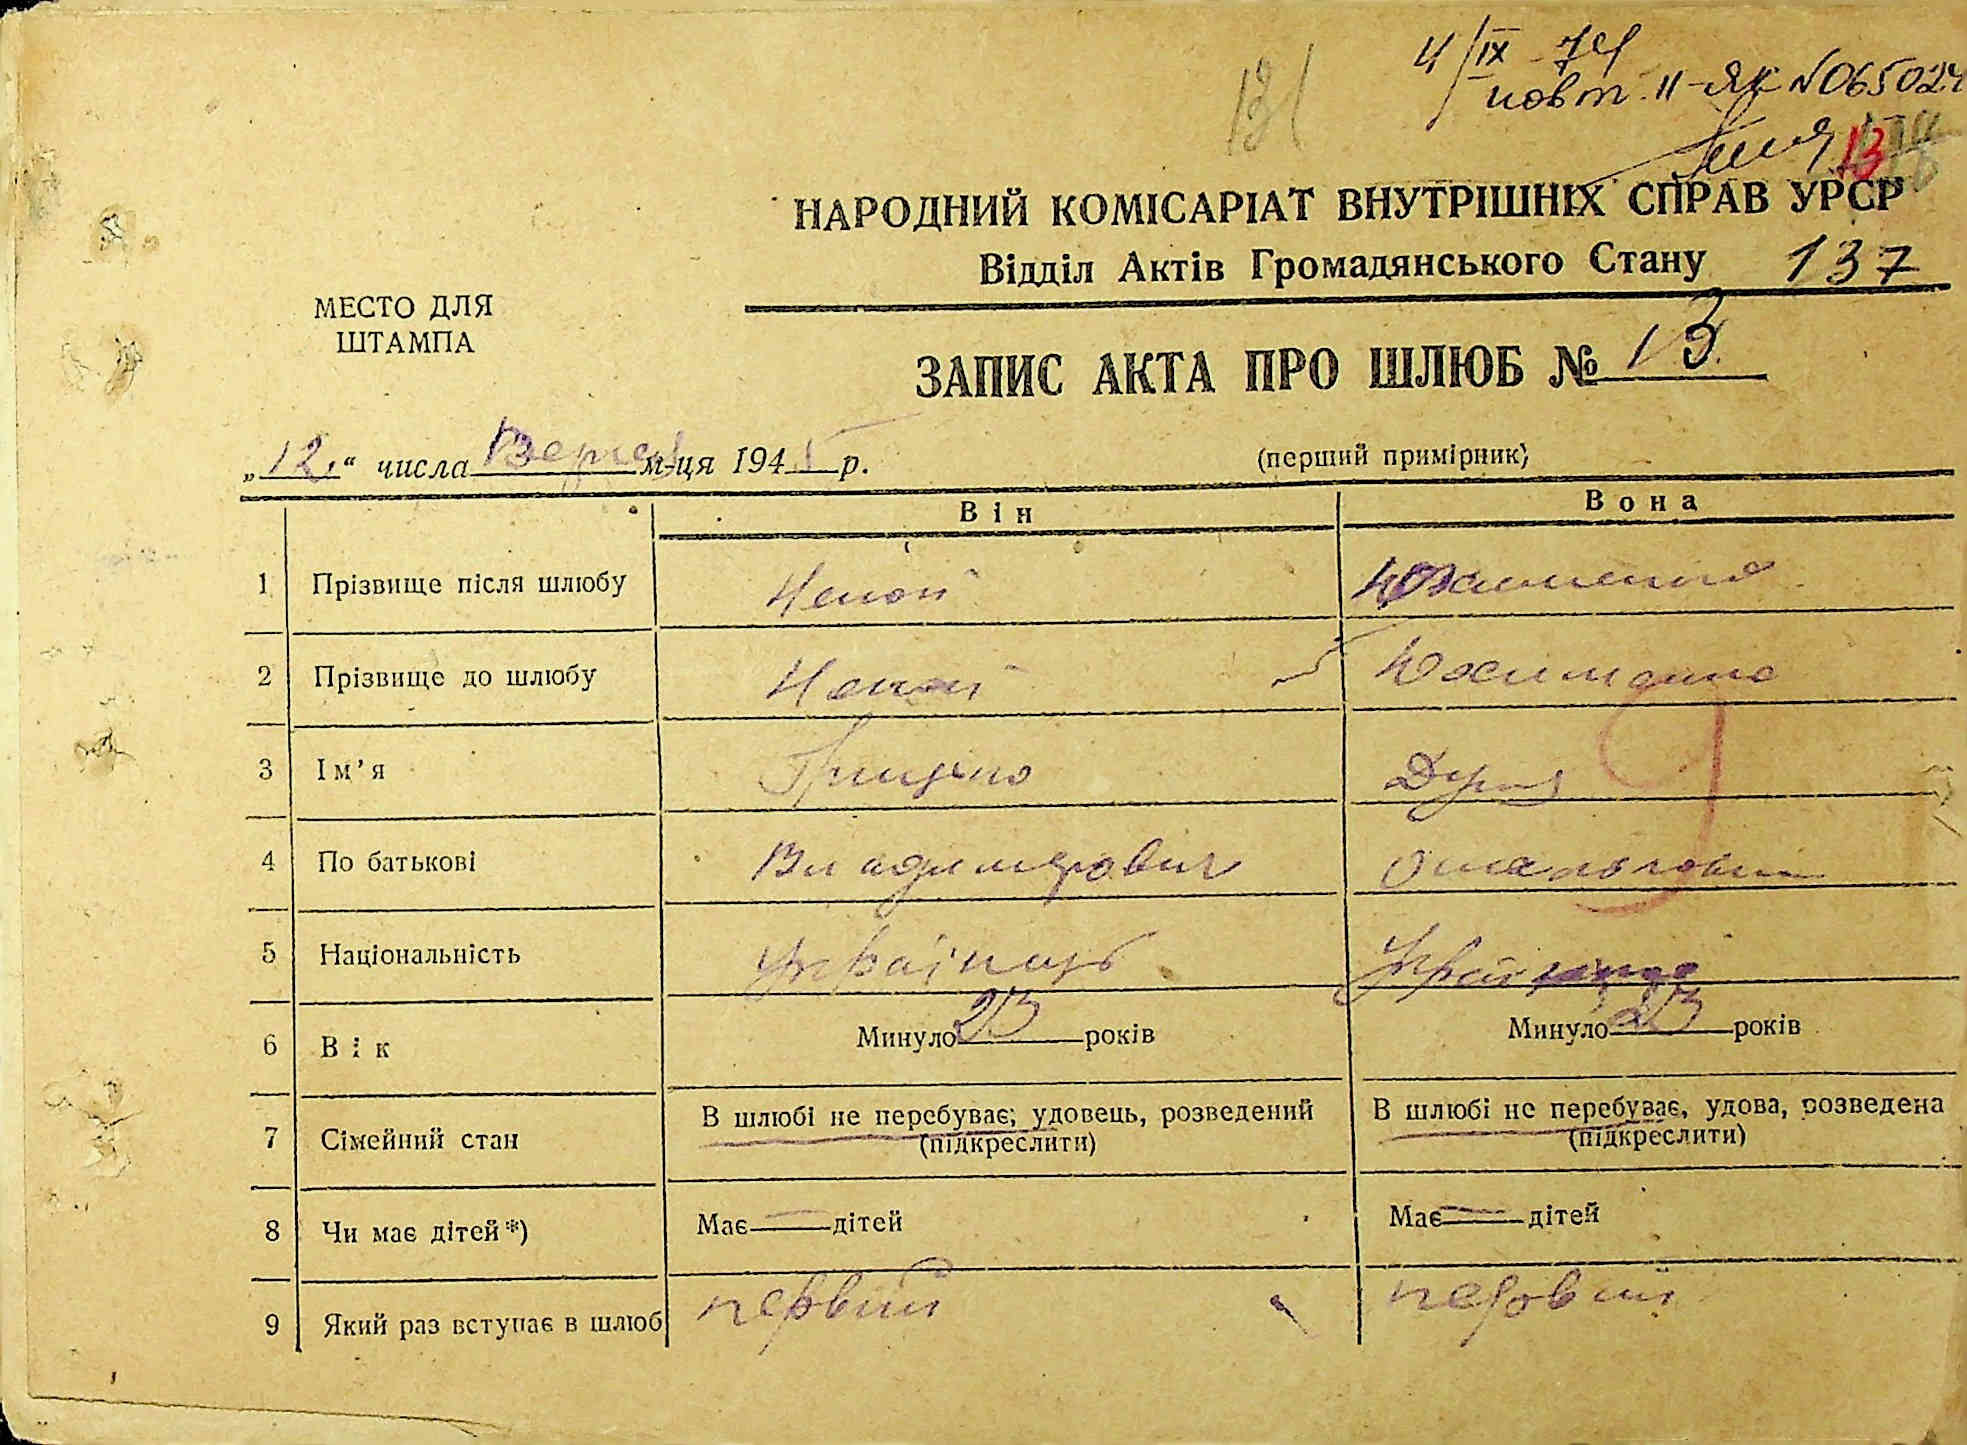 131
4/IX-74
повт. II-ЯК №065024
13
НАРОДНИЙ КОМІСАРІАТ ВНУТРІШНІХ СПРАВ УРСР
Відділ Актів Громадянського Стану 137
МЕСТО ДЛЯ
ШТАМПА
ЗАПИС АКТА ПРО ШЛЮБ № 13.
„12“ числа м-ця 1945 р.
(перший примірник)
Він Вона
1 Прізвище після шлюбу
2 Прізвище до шлюбу
3 Ім’я Грицько
4 По батькові Владимирович
5 Національність Українець Українка
6 Вік Минуло 23 років Минуло 23 років
7 Сімейний стан В шлюбі не перебуває; удовець, розведений В шлюбі не перебуває, удова, розведена
(підкреслити) (підкреслити)
8 Чи має дітей*) Має — дітей Має — дітей
9 Який раз вступає в шлюб первий первий